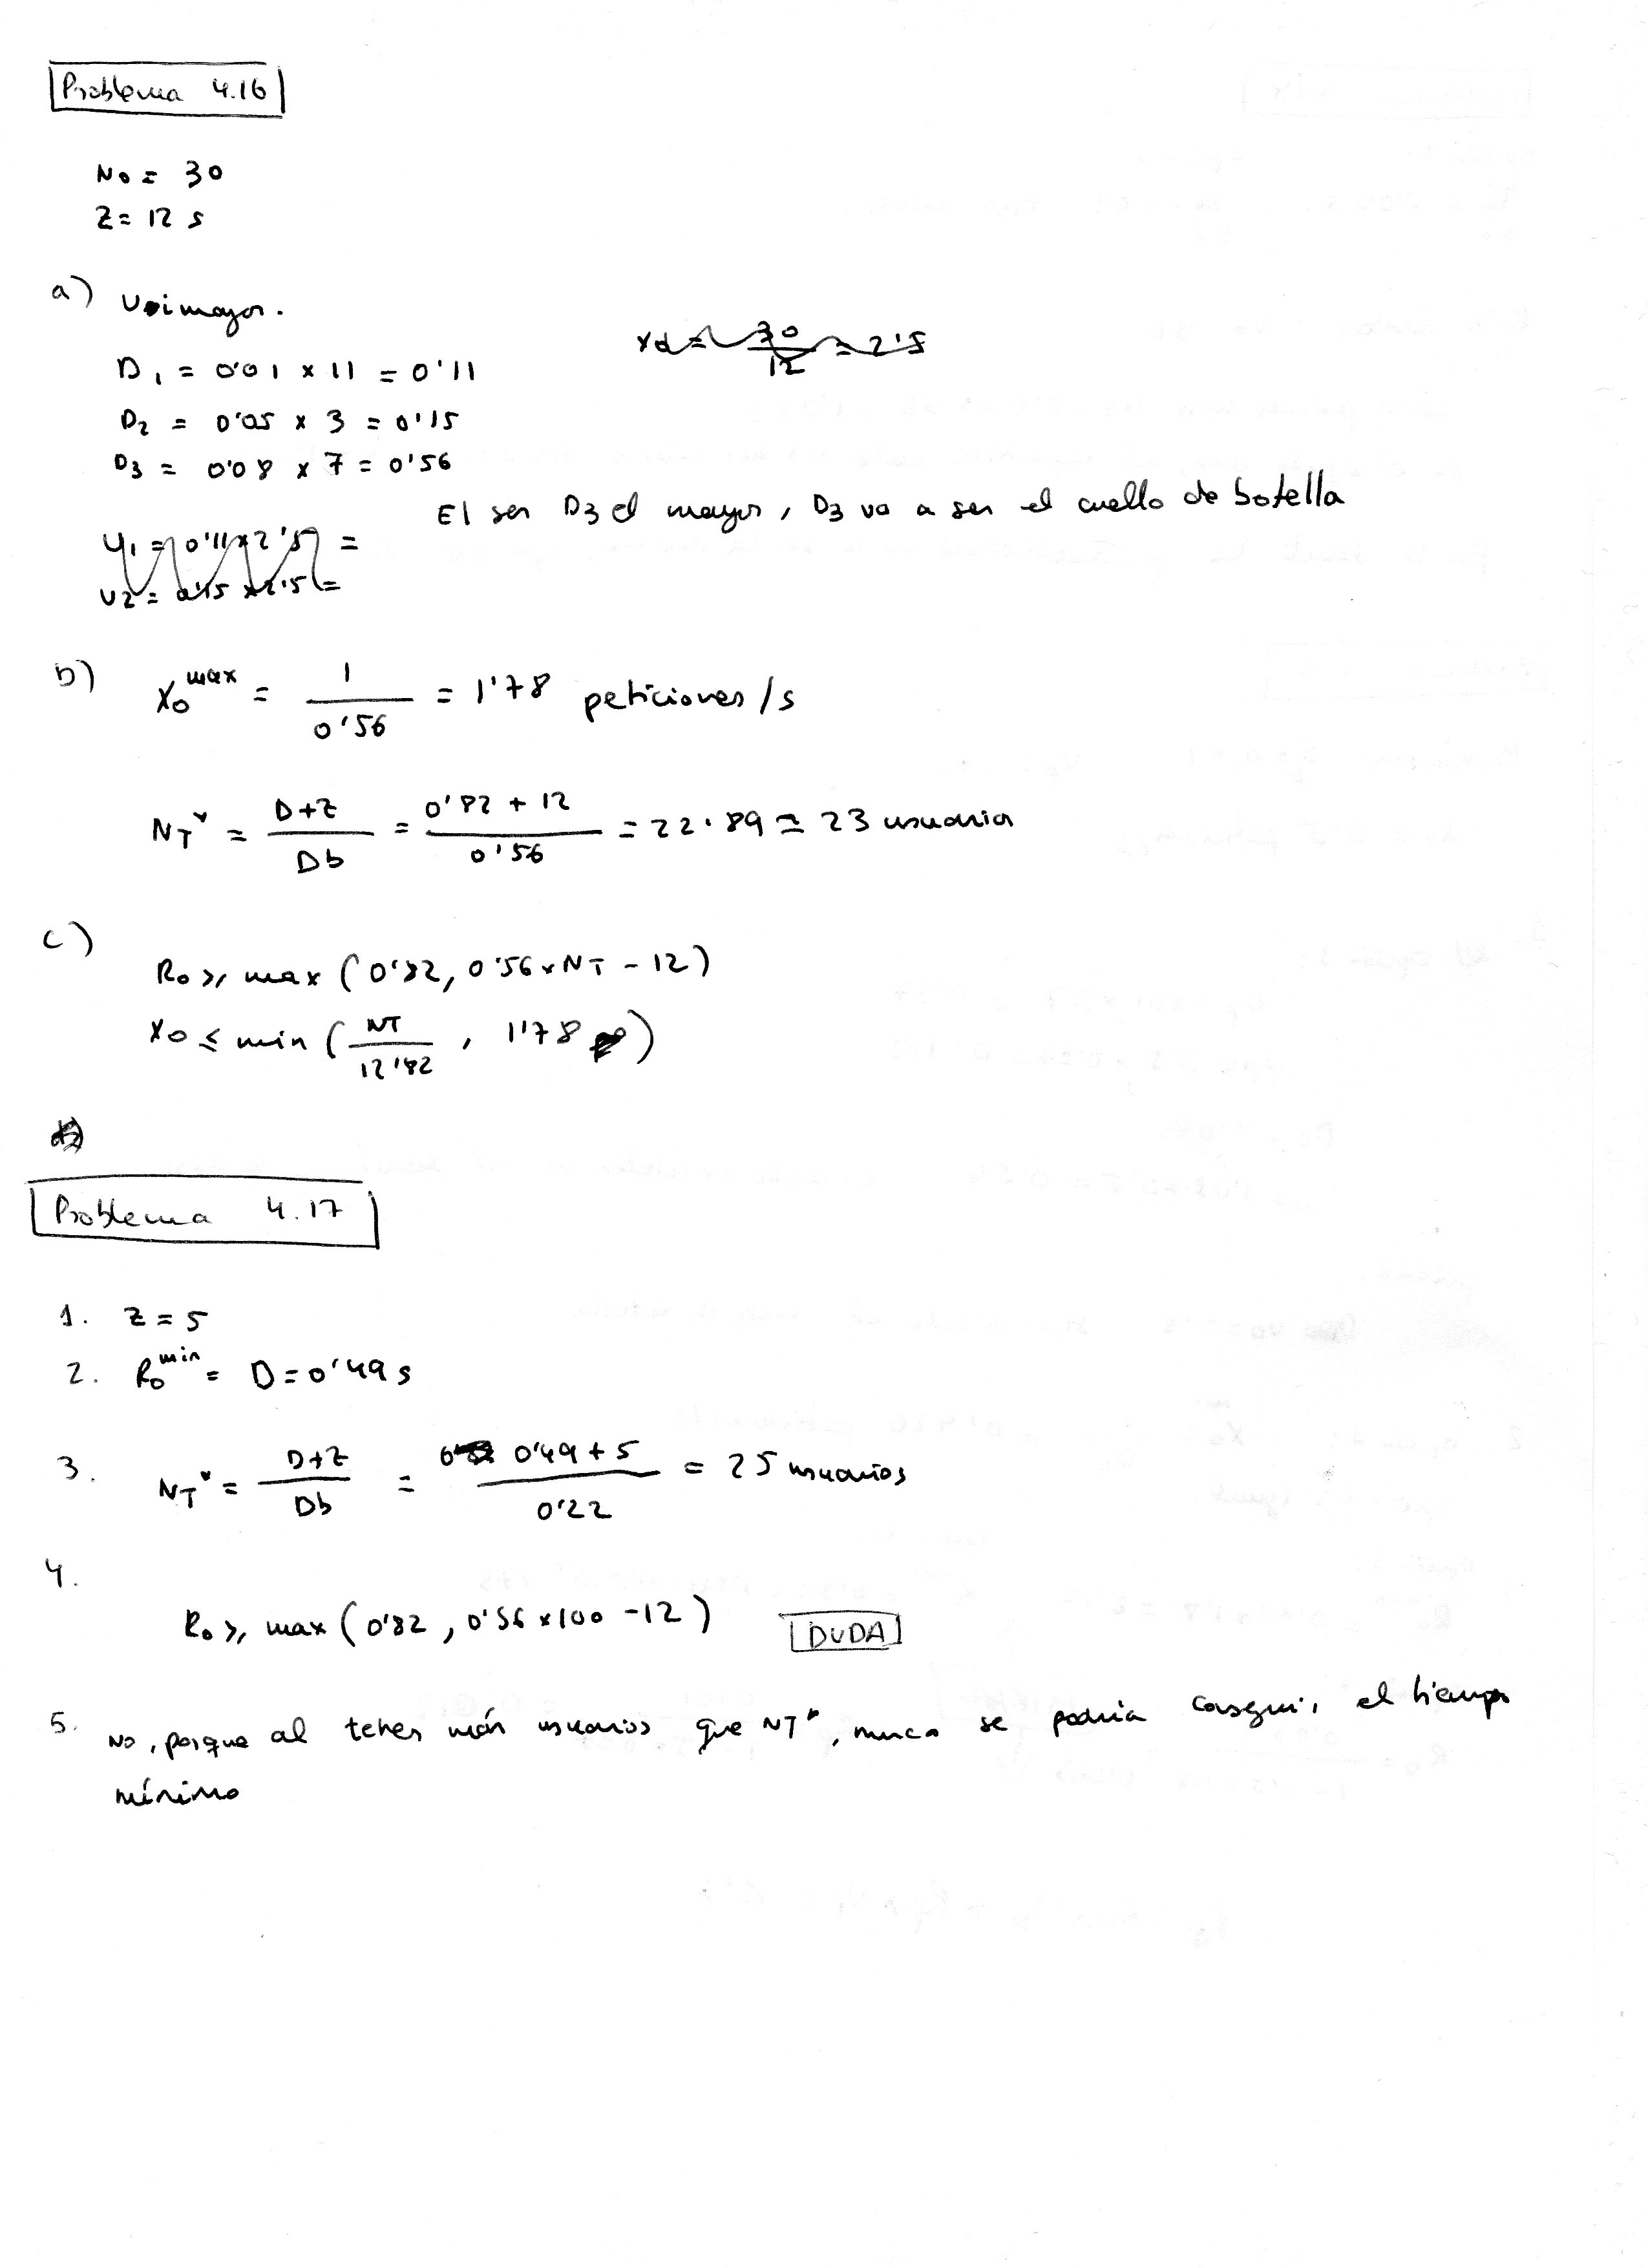 Problema 4.16
No = 30
Z = 12 s
a) Ubi mayor.
D1 = 0'01 x 11 = 0'11
X0 = 30/12 = 2'5
D2 = 0'05 x 3 = 0'15
D3 = 0'08 x 7 = 0'56
El ser D3 el mayor, D3 va a ser el cuello de botella
U1 = 0'11 x 2'5 =
U2 = 0'15 x 2'5 =
b) X0^max = 1/0'56 = 1'78 peticiones/s
NT* = D+Z/Db = 0'82 + 12/0'56 = 22.89 ≃ 23 usuario
c)
Ro ≥ max (0'82, 0'56 x NT - 12)
Xo ≤ min (NT/12'82, 1'78)
Problema 4.17
1. Z = 5
2. Ro^min = D = 0'49 s
3. NT* = D+Z/Db = 0'49 + 5/0'22 = 25 usuarios
4.
Ro ≥ max (0'82, 0'56 x 100 - 12) DUDA
5. No, porque al tener más usuarios que NT*, nunca se podría conseguir el tiempo
mínimo